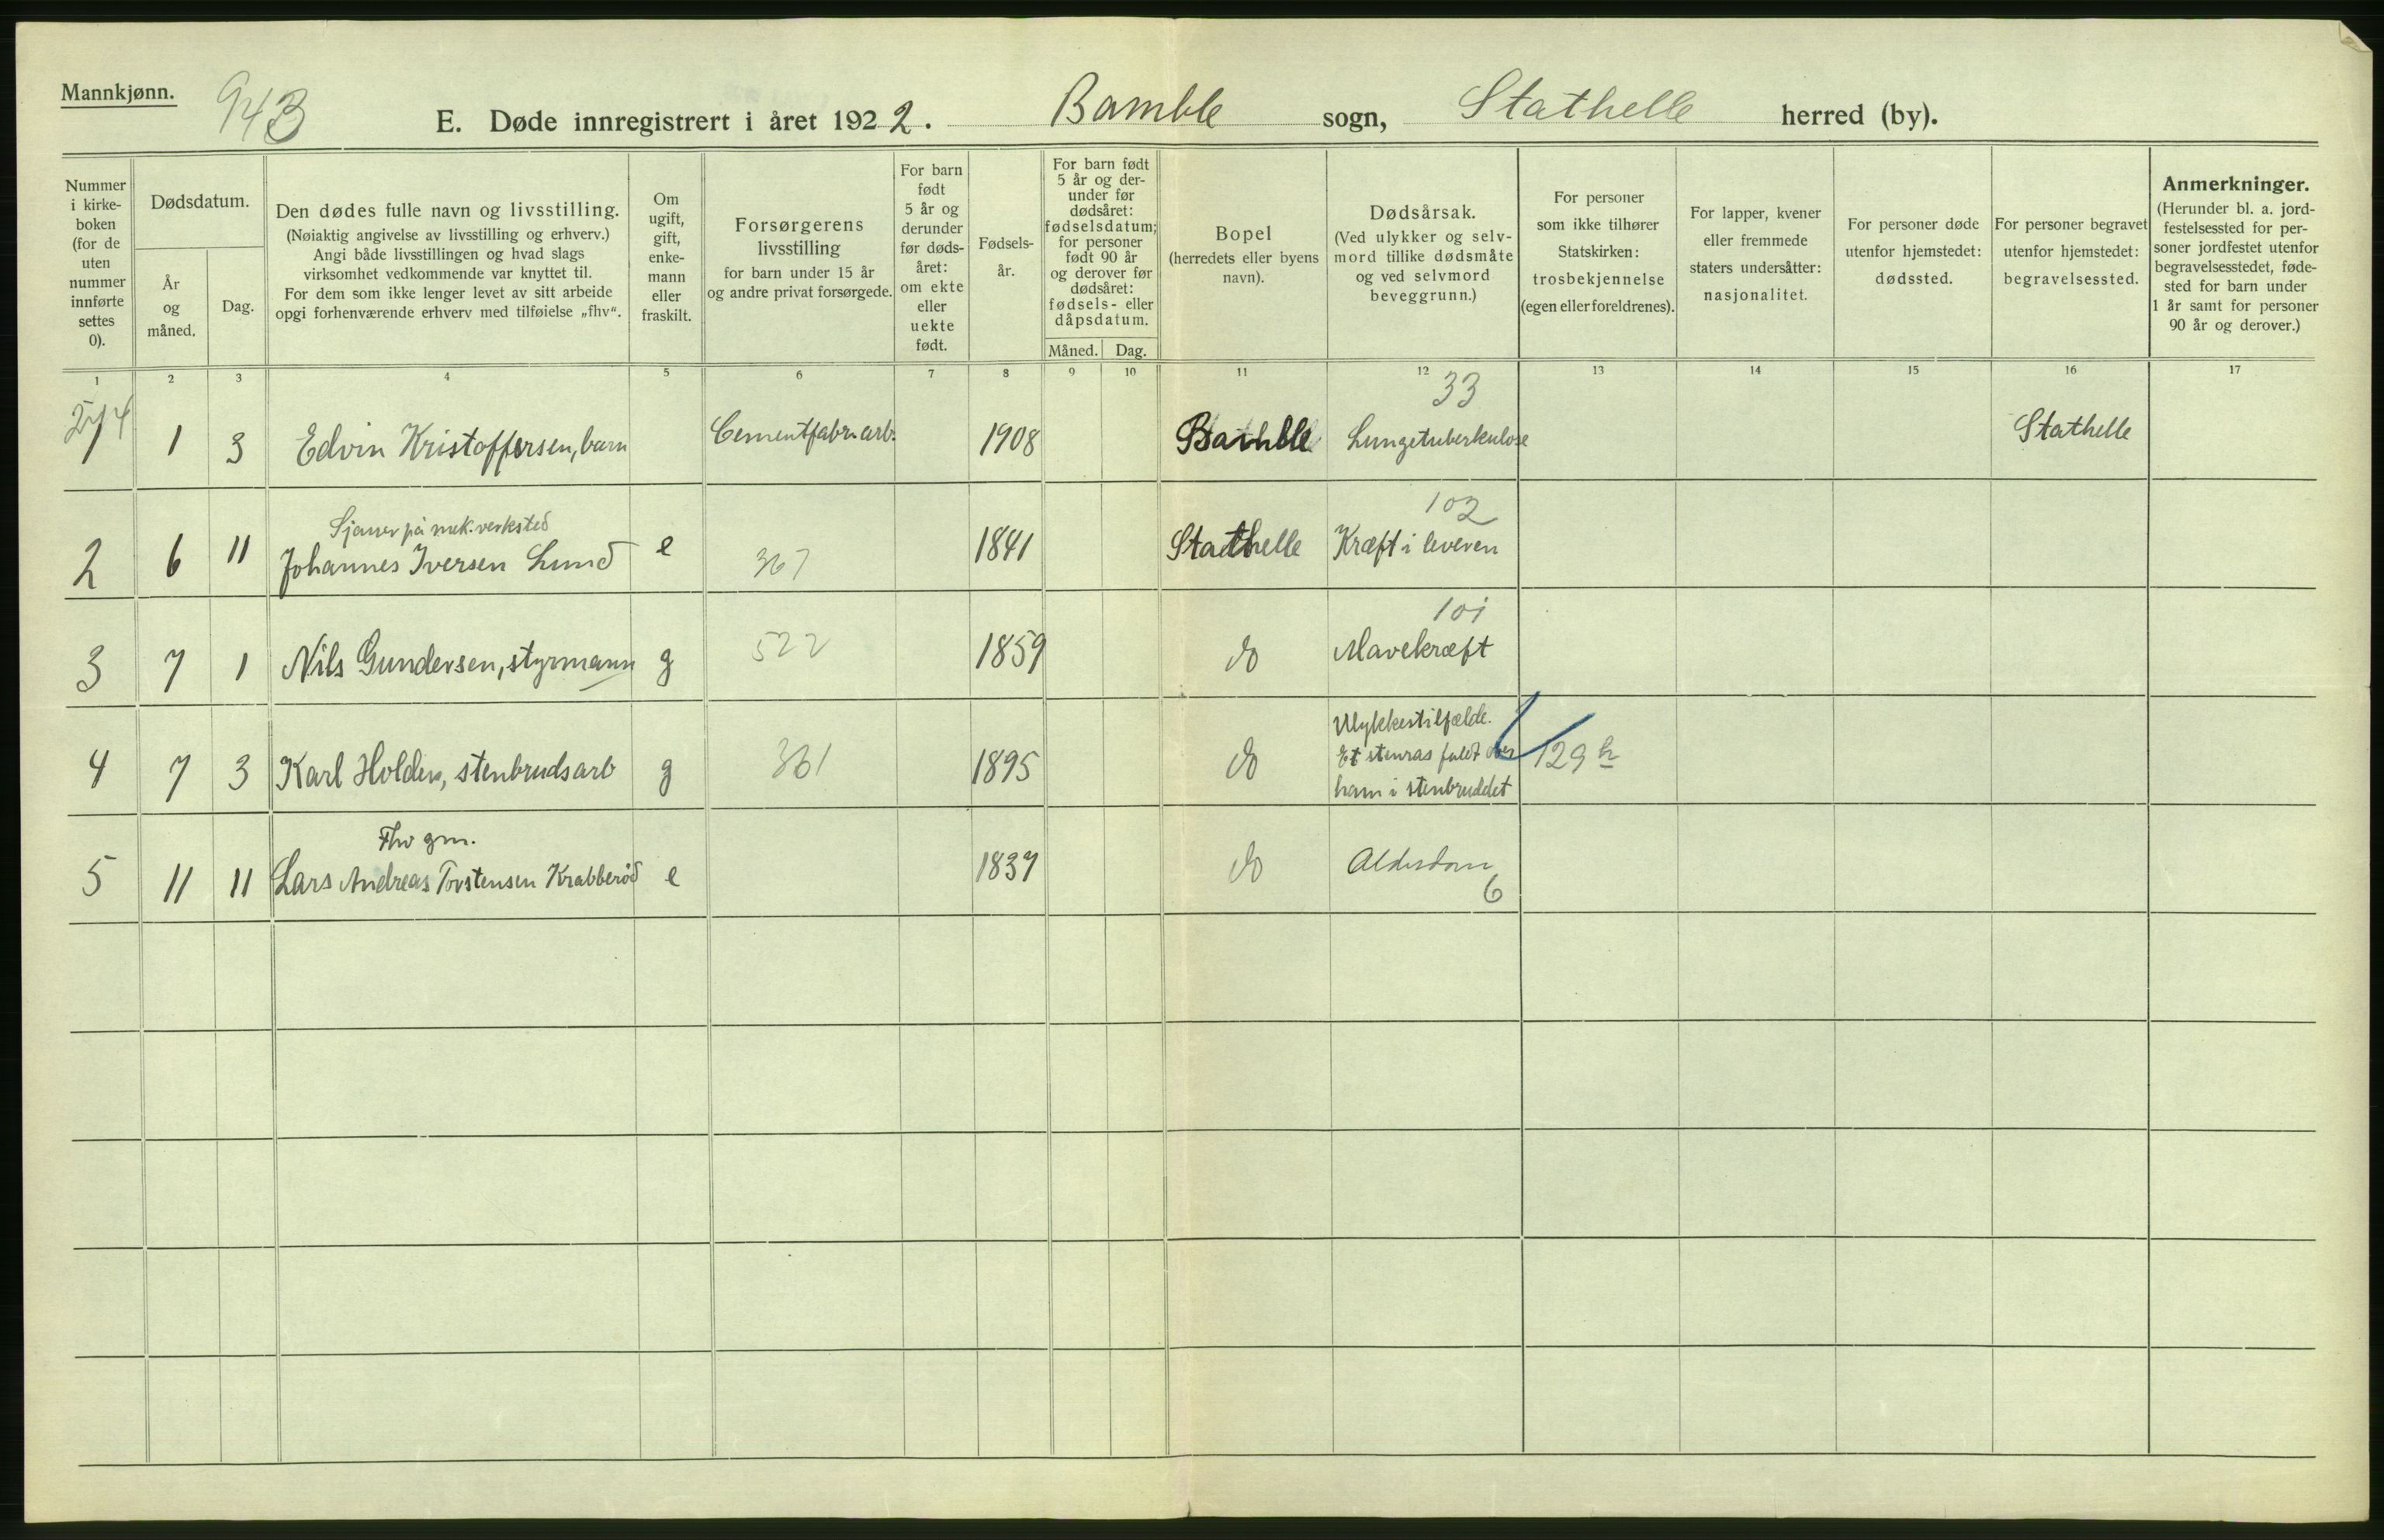 Mannkjønn.
943
E. Døde innregistrert i året 1922. Bamble sogn, Stathelle herred (by).
Nummer i kirke-boken (for de uten nummer innførte settes 0).
Dødsdatum.
År og måned.
Dag.
Den dødes fulle navn og livsstilling.
(Nøiaktig angivelse av livsstilling og erhverv.)
Angi både livsstillingen og hvad slags
virksomhet vedkommende var knyttet til.
For dem som ikke lenger levet av sitt arbeide
opgi forhenværende erhverv med tilføielse „fhv“.
Om ugift, gift, enke-mann eller fraskilt.
Forsørgerens
livsstilling
for barn under 15 år
og andre privat forsørgede.
For barn født 5 år og derunder før døds-året: om ekte eller uekte født.
Fødsels-år.
For barn født 5 år og der-under før dødsåret: fødselsdatum; for personer født 90 år og derover før dødsåret: fødsels- eller dåpsdatum.
Måned. Dag.
Bopel
(herredets eller byens navn).
Dødsårsak.
(Ved ulykker og selv-mord tillike dødsmåte og ved selvmord beveggrunn.)
For personer som ikke tilhører Statskirken: trosbekjennelse (egen eller foreldrenes).
For lapper, kvener eller fremmede staters undersåtter: nasjonalitet.
For personer døde utenfor hjemstedet: dødssted.
For personer begravet utenfor hjemstedet: begravelsessted.
Anmerkninger.
(Herunder bl. a. jord-festelsessted for per-soner jordfestet utenfor begravelsesstedet, føde-sted for barn under 1 år samt for personer 90 år og derover.)
1 2 3 4 5 6 7 8 9 10 11 12 13 14 15 16 17
33
1 1 3 Edvin Kristoffersen, barn Cementfabr. arb. 1908 Bamble Lungetuberkulose Stathelle
Sjauer på mek. verksted 102
2 6 11 Johannes Iversen Lund e 367 1841 Stathelle Kræft i leveren
101
3 7 1 Nils Gundersen, styrmann g 522 1859 do Mavekræft
Ulykkestilfælde.
4 7 3 Karl Holden, stenbrudsarb g 361 1895 do Et stenras faldt over 129 h
ham i stenbruddet
Fhv gm.
5 11 11 Lars Andreas Torstensen Krabberød e 1837 do Alderdom
6